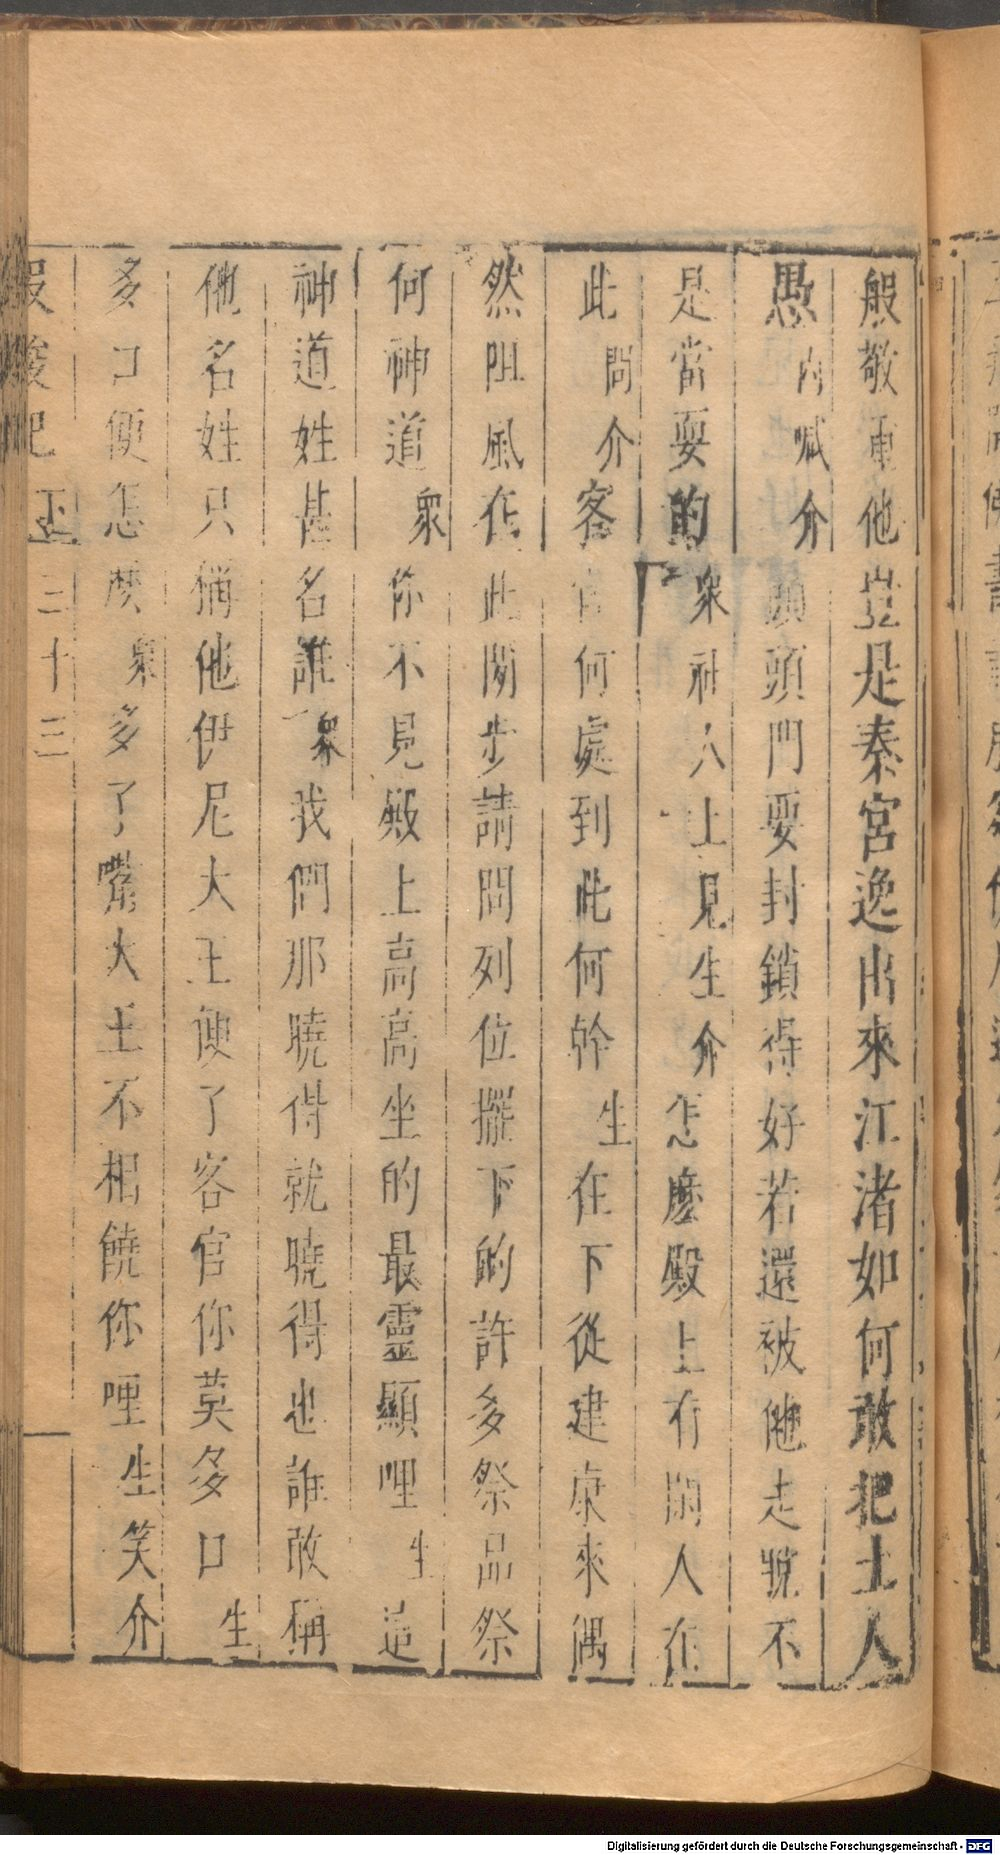 般敬重他豈是秦宮逸出來江渚如何敢把土人
愚內喊介頭頭門要封鎖得好若還被他走脫不
是當耍的衆社人上見生介怎麽殿上有閑人在
此問介客官何處到此何幹生在下從建康來偶
然阻風在此閒步請問列位擺下的許多祭品祭
何神道衆你不見殿上高高坐的最靈顯哩生這
神道姓甚名誰衆我們那曉得就曉得也誰敢稱
他名姓只稱他伊尼大王便了客官你莫多口生
多口便怎麽衆多了嘴大王不相饒你哩生笑介
三十三
Digitalisierung gefördert durch die Deutsche Forschungsgemeinschaft - DFG